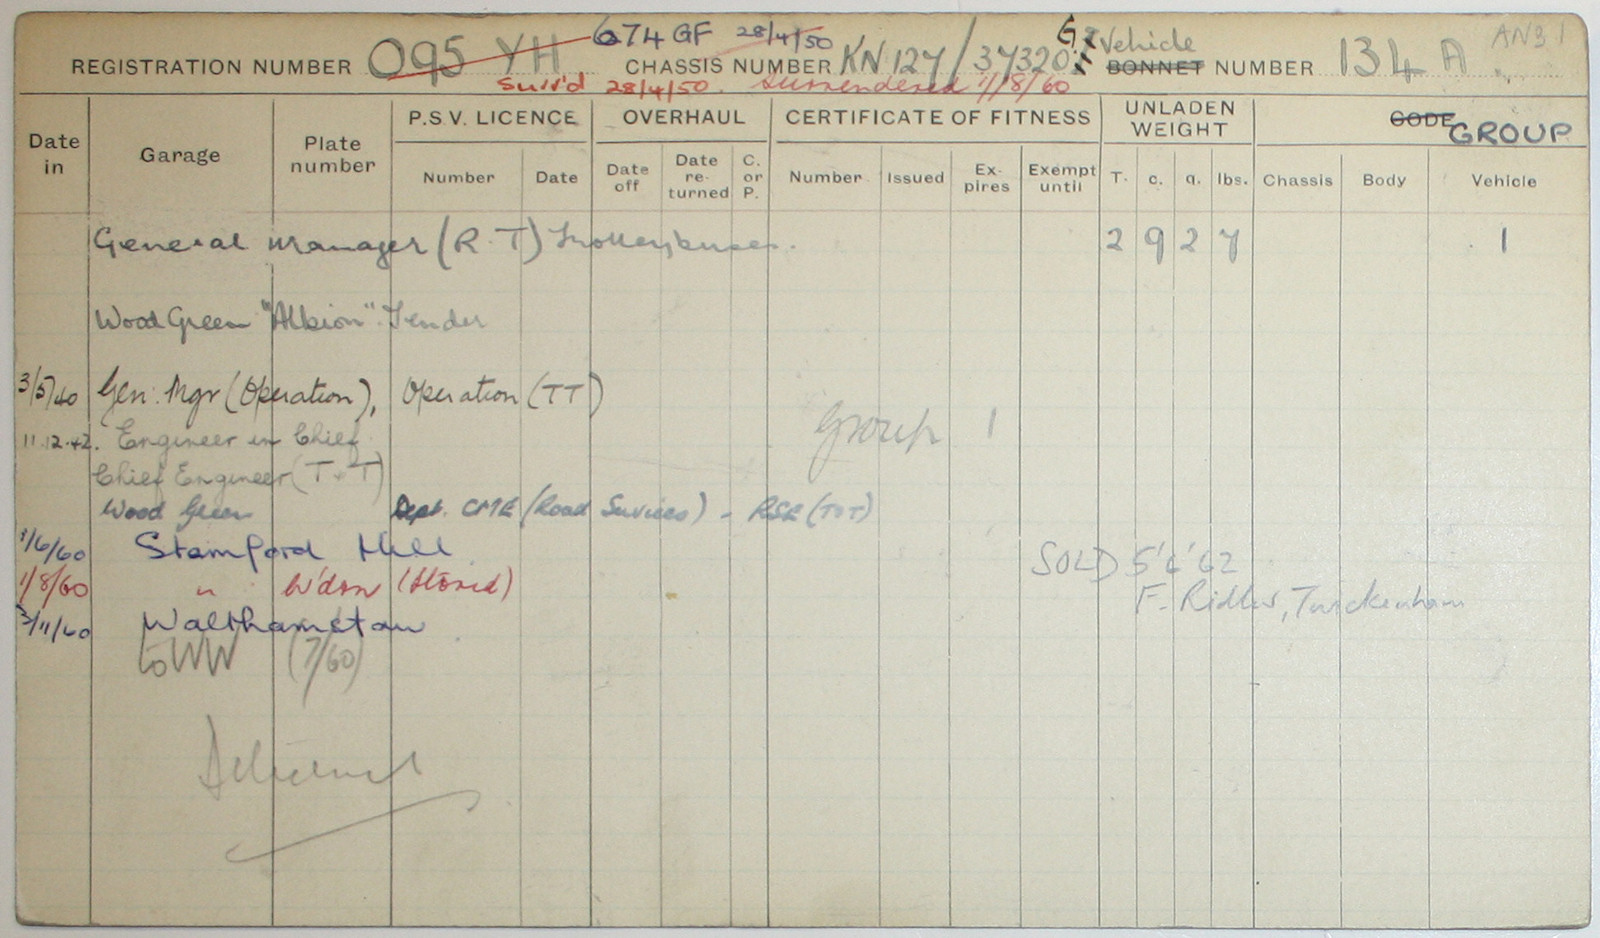 674 GF 28/4/50 G7 Vehicle AN3 1
REGISTRATION NUMBER 095 YH CHASSIS NUMBER KN127/37320 BONNET NUMBER 134 A
Surr'd 28/4/50. Surrendered 1/8/60
Date in Garage Plate number P.S.V. LICENCE OVERHAUL CERTIFICATE OF FITNESS UNLADEN WEIGHT CODE GROUP
Number Date Date off Date re-turned C. or P. Number Issued Ex-pires Exempt until T. c. q. lbs. Chassis Body Vehicle
General Manager (R.T) Trolleybuses. 2 9 2 7 1
Wood Green "Albion" Tender
3/5/40 Gen. Mgr (Operation), Operation (TT)
11.12.42. Engineer in Chief Group 1
Chief Engineer (T+T)
Wood Green Dept. CME (Road Services) - RSE (T&T)
1/6/60 Stamford Hill SOLD 5'6'62
1/8/60 " W'drn (Stored) F. Ridler, Twickenham
3/11/60 Walthamstow
to WW (7/60)